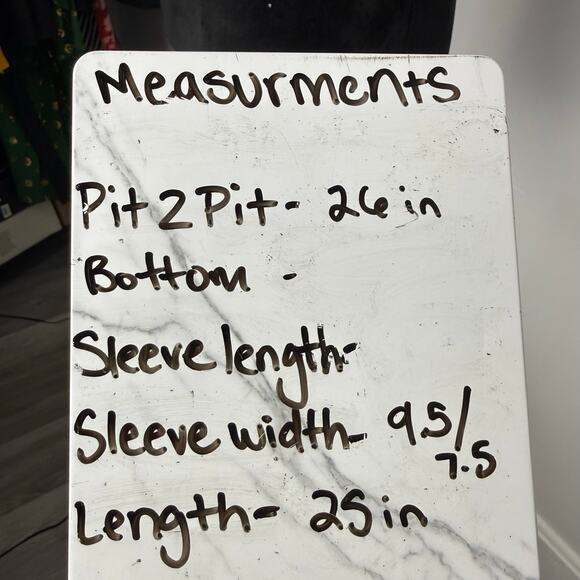 Measurments
Pit 2 Pit- 26 in
Bottom -
Sleeve length-
Sleeve width- 9.5/
7.5
Length- 25 in